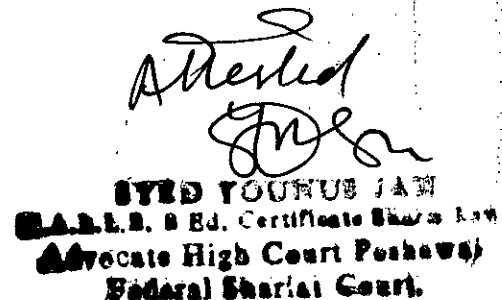 Attested
SYED YOUNUS JAN
M.A.L.L.B. B Ed. Certificate Sharia Law
Advocate High Court Peshawar
Federal Shariat Court.